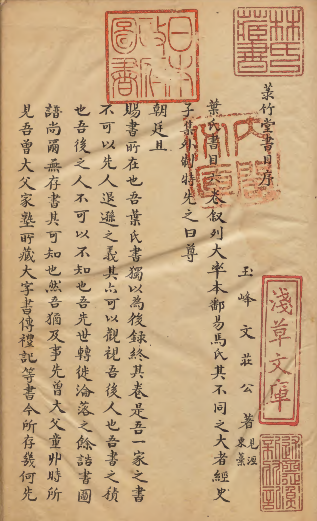 菉竹堂書目序
玉峰文莊公著
葉氏書目六卷叙列大率本鄱昜馬氏其不同之大者經史
子集外制特先之曰尊
朝廷且
賜書所在也吾葉氏書獨以為後録終其卷是吾一家之書
不可以先人退遜之義其亦可以觀視吾後人也吾書之積
也吾後之人不可以不知也吾先世轉徙淪落之餘誥書圖
譜尚爾無存書其可知也然吾猶及事先曾大父童丱時所
見吾曾大父家塾所藏大字書傳禮記等書令所存幾何先
林氏藏書
日本政府圖書
淺草文庫